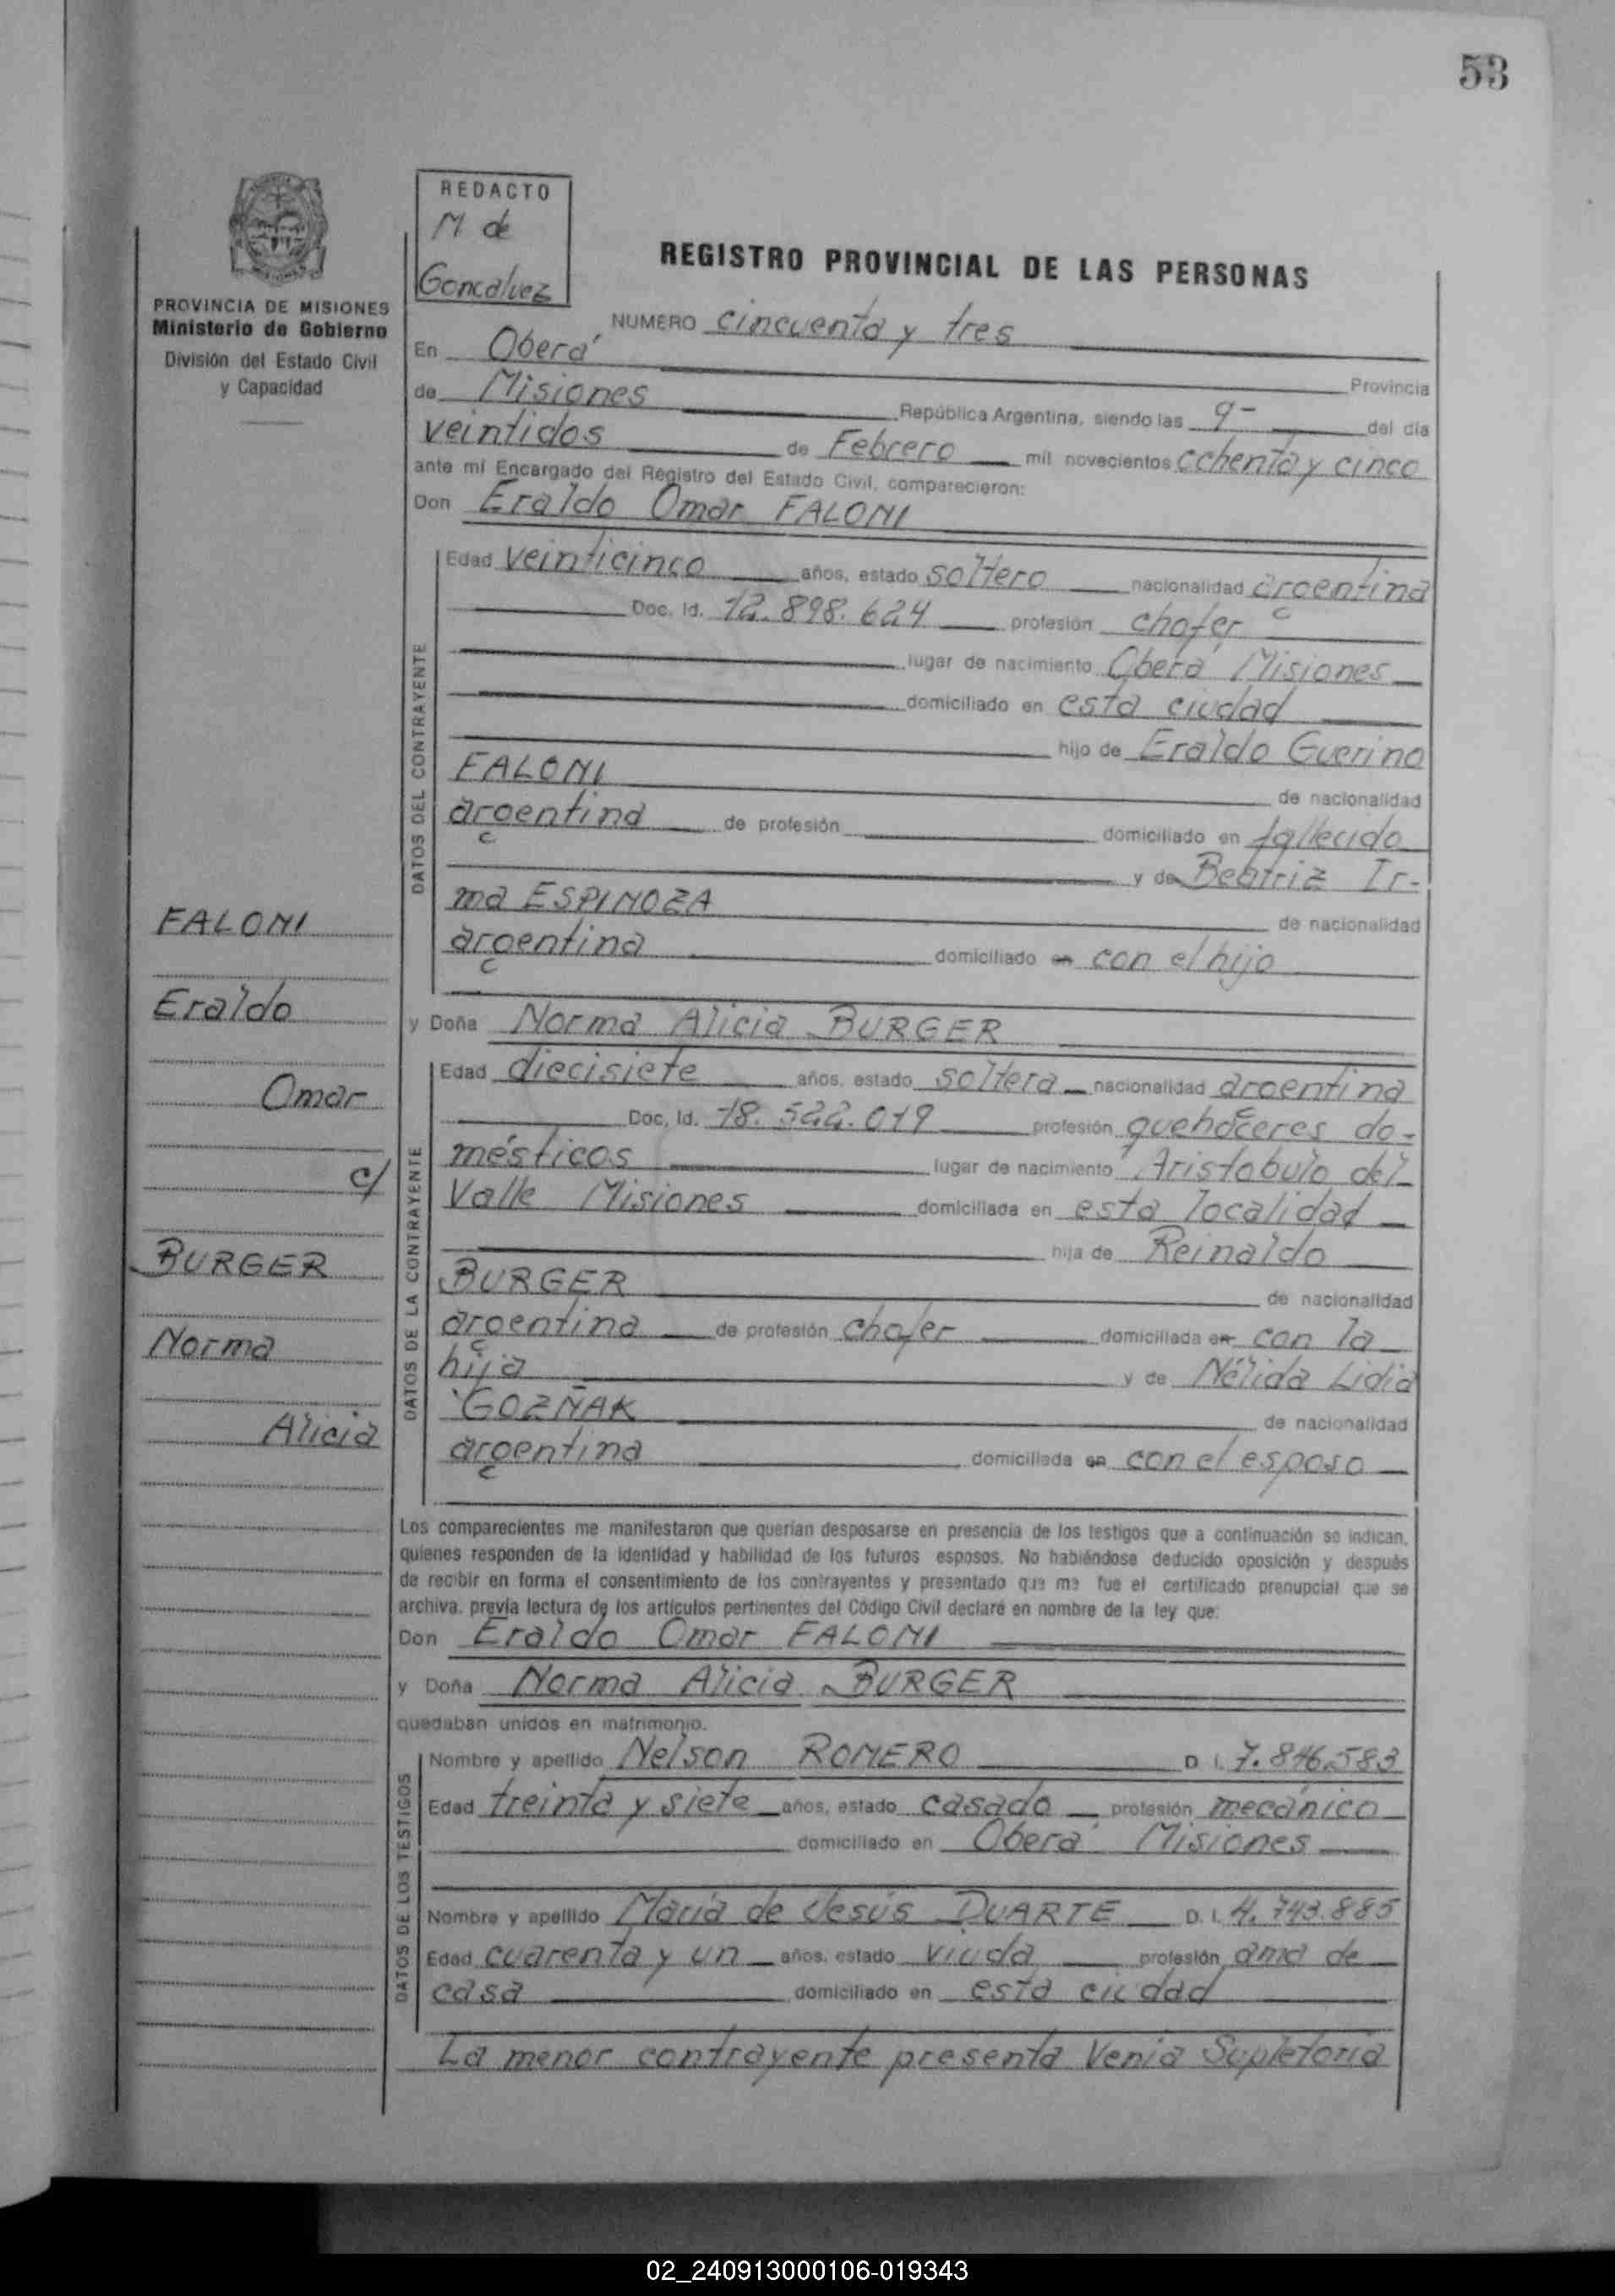 53
REDACTO
M de
Goncalvez
PROVINCIA DE MISIONES
Ministerio de Gobierno
División del Estado Civil
y Capacidad
REGISTRO PROVINCIAL DE LAS PERSONAS
NUMERO cincuenta y tres
En Oberá Provincia
de Misiones República Argentina, siendo las 9- del día
veintidos de Febrero mil novecientos ochenta y cinco
ante mí Encargado del Registro del Estado Civil, comparecieron:
Don Eraldo Omar FALONI
DATOS DEL CONTRAYENTE
Edad veinticinco años, estado soltero nacionalidad argentina
Doc. Id. 12.898.624 profesión chofer
lugar de nacimiento Oberá Misiones
domiciliado en esta ciudad
hijo de Eraldo Guerino
FALONI de nacionalidad
argentina de profesión domiciliado en fallecido
y de Beatriz Ir-
ma ESPINOZA de nacionalidad
argentina domiciliado en con el hijo
y Doña Norma Alicia BURGER
DATOS DE LA CONTRAYENTE
Edad diecisiete años, estado soltera nacionalidad argentina
Doc. Id. 18.522.019 profesión quehaceres do-
mésticos lugar de nacimiento Aristobulo del
Valle Misiones domiciliada en esta localidad
hija de Reinaldo
BURGER de nacionalidad
argentina de profesión chofer domiciliada en con la
hija y de Nélida Lidia
GOZÑAK de nacionalidad
argentina domiciliada en con el esposo
FALONI
Eraldo
Omar
c/
BURGER
Norma
Alicia
Los comparecientes me manifestaron que querían desposarse en presencia de los testigos que a continuación se indican,
quienes responden de la identidad y habilidad de los futuros esposos. No habiéndose deducido oposición y después
de recibir en forma el consentimiento de los contrayentes y presentado que me fue el certificado prenupcial que se
archiva, previa lectura de los artículos pertinentes del Código Civil declaré en nombre de la ley que:
Don Eraldo Omar FALONI
y Doña Norma Alicia BURGER
quedaban unidos en matrimonio.
DATOS DE LOS TESTIGOS
Nombre y apellido Nelson ROMERO D. I. 7.846.583
Edad treinta y siete años, estado casado profesión mecánico
domiciliado en Oberá Misiones
Nombre y apellido María de Jesús DUARTE D. I. 4.743.885
Edad cuarenta y un años, estado viuda profesión ama de
casa domiciliado en esta ciudad
La menor contrayente presenta Venia Supletoria
02_240913000106-019343